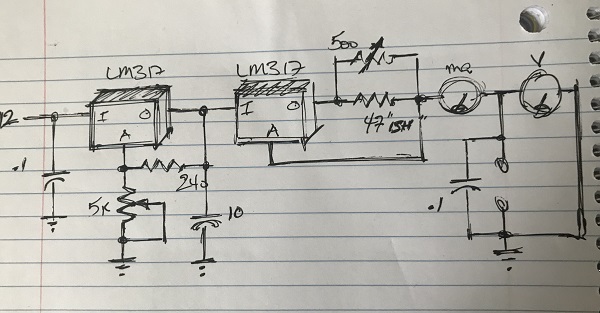 500
LM317
LM317
ma
V
I O
I O
12
A
A
47"ISH"
.1
240
5K
10
.1